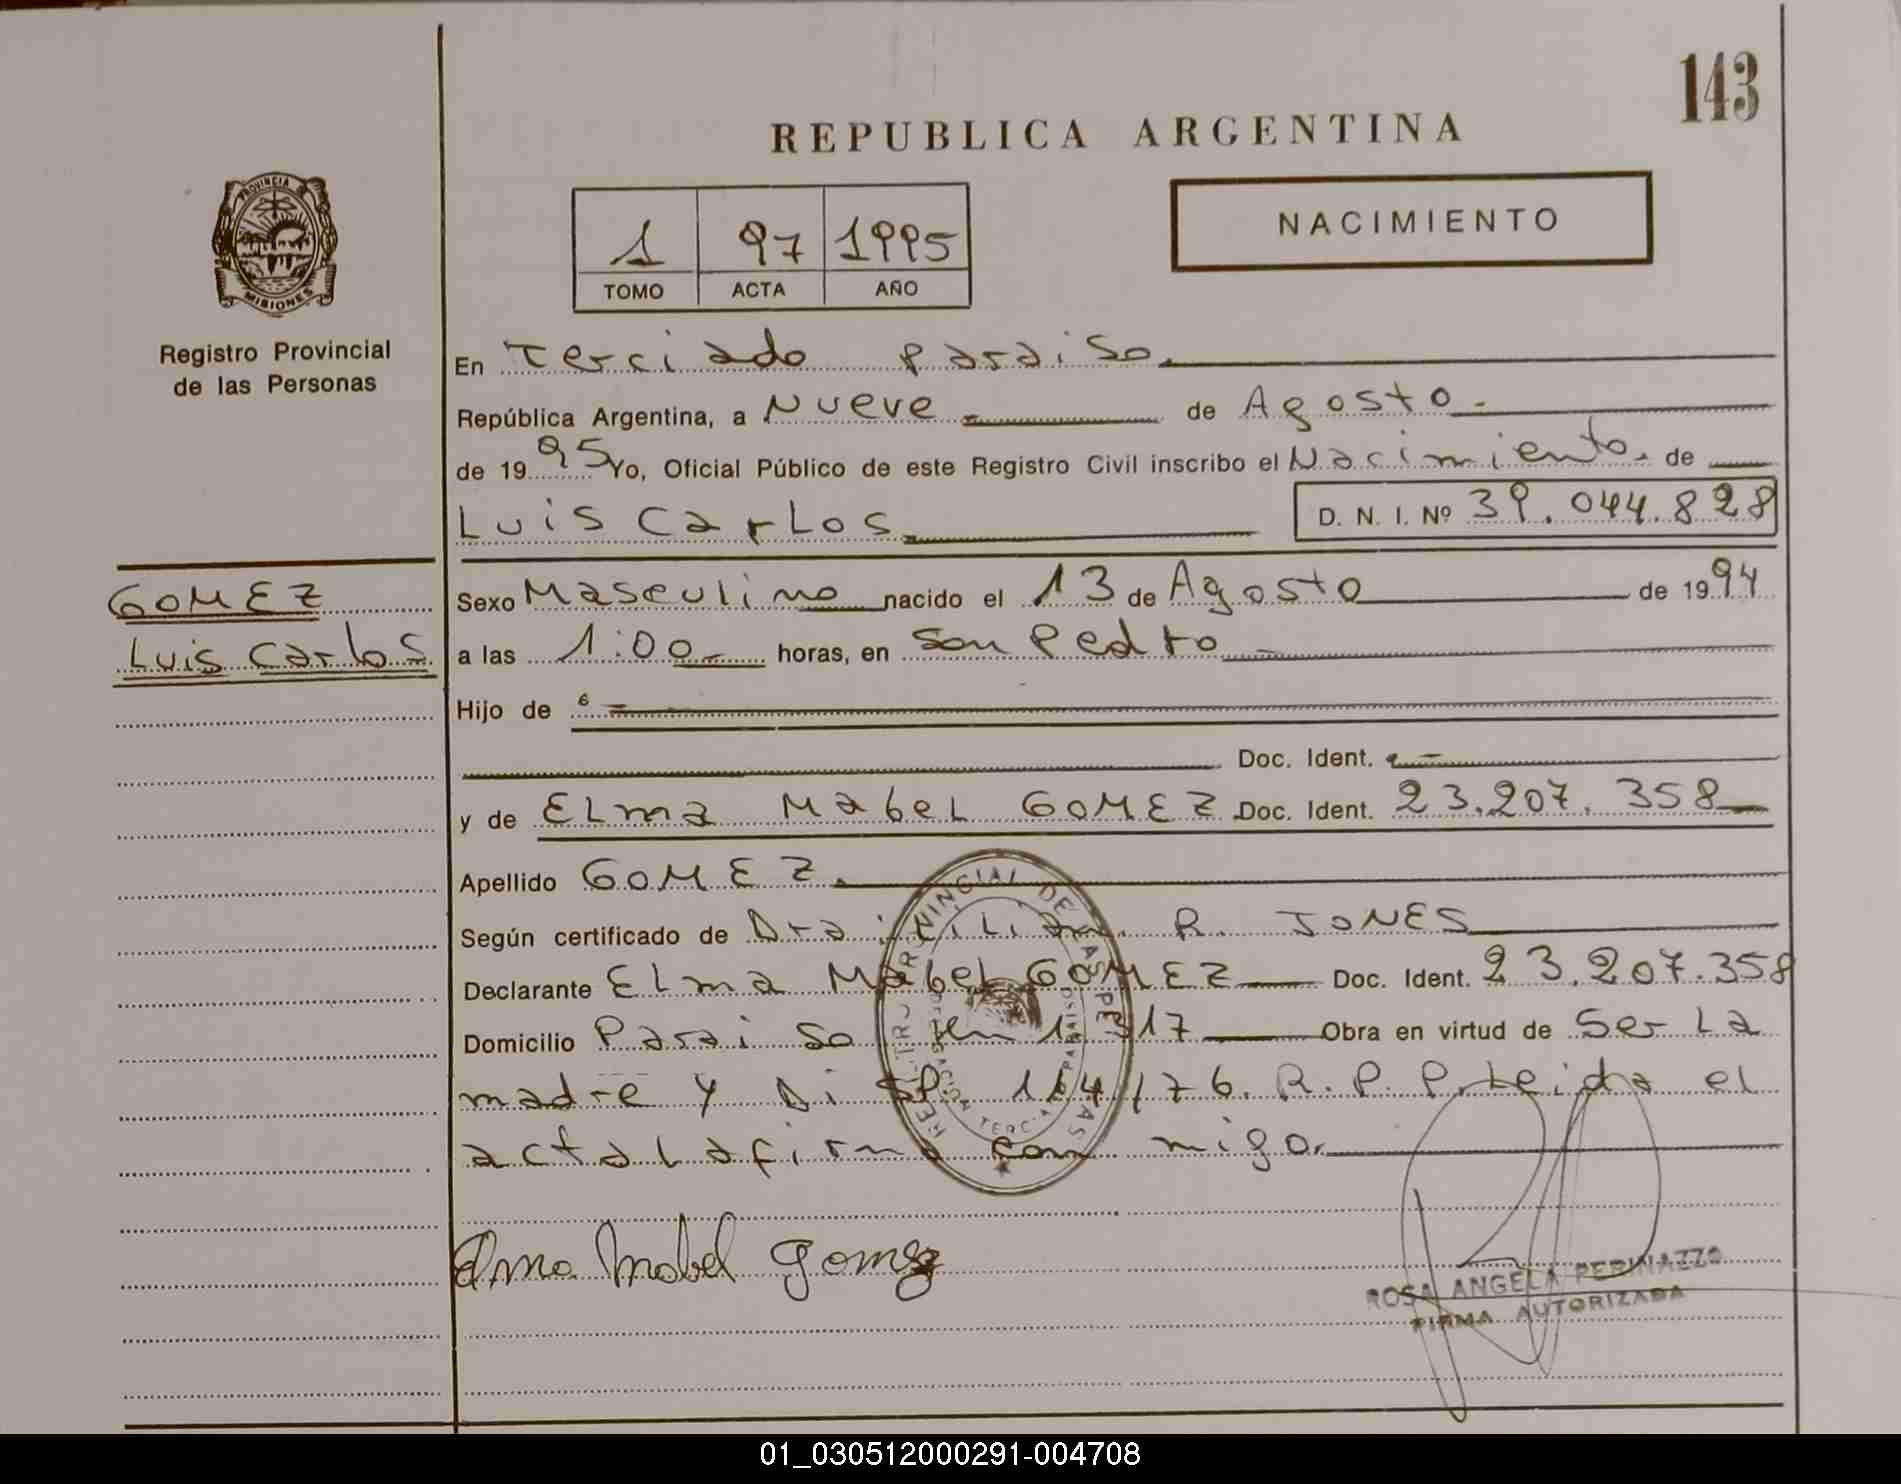 143
REPUBLICA ARGENTINA
PROVINCIA
MISIONES
Registro Provincial
de las Personas
1 97 1995
TOMO ACTA AÑO
NACIMIENTO
En Terciado Paraiso.
República Argentina, a Nueve de Agosto.
de 1995 Yo, Oficial Público de este Registro Civil inscribo el Nacimiento. de
Luis Carlos D. N. I. Nº 39.044.828
GOMEZ
Luis Carlos
Sexo Masculino nacido el 13 de Agosto de 1994
a las 1:00 horas, en San Pedro
Hijo de
Doc. Ident.
y de ELma MabeL GOMEZ Doc. Ident. 23.207.358
Apellido GOMEZ.
Según certificado de Dra: LiLian R. JONES
Declarante ELma MabeL GOMEZ Doc. Ident. 23.207.358
Domicilio Paraiso km 1317 Obra en virtud de Ser La
madre y Disp. 114/76. R.P.P. Leida el
acta La firma con migo.
REGISTRO PROVINCIAL DE LAS PERSONAS
Elma Mabel Gomez
ROSA ANGELA PERINAZZO
FIRMA AUTORIZADA
01_030512000291-004708